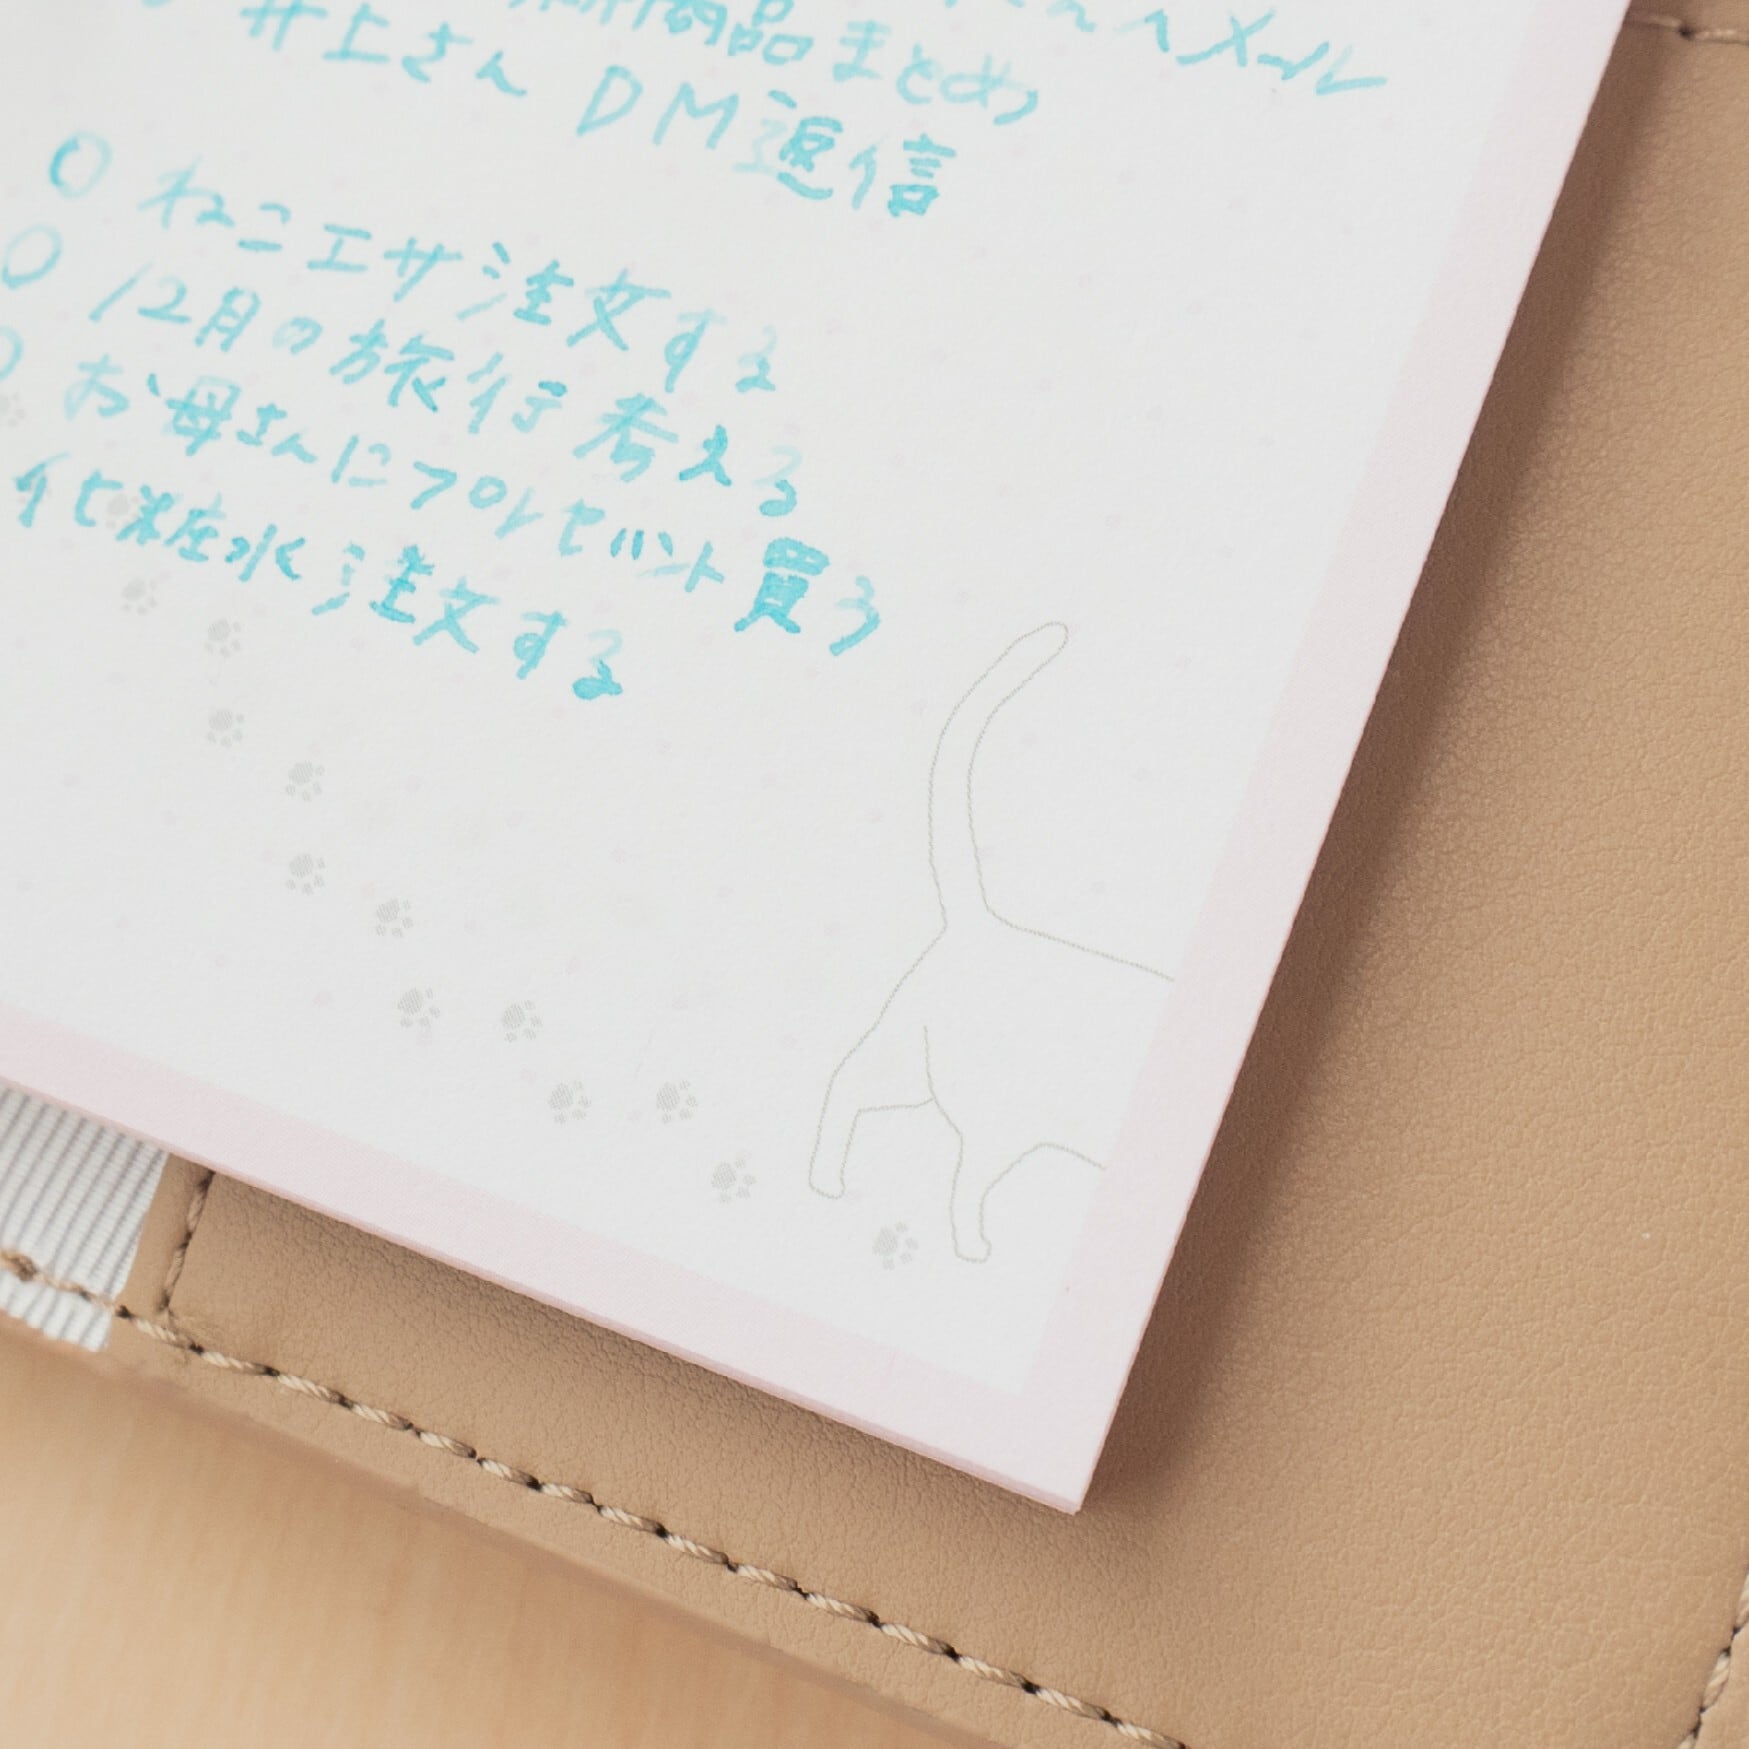 へメール
商品まとめ
井上さん DM返信
○ ねこエサ注文する
○ 12月の旅行考える
○ お母さんにプレゼント買う
化粧水注文する